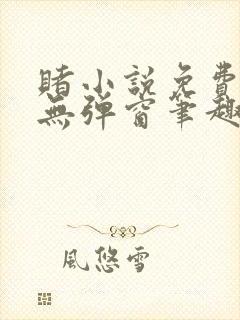 賭小說免費
無彈窗筆趣
風悠雪